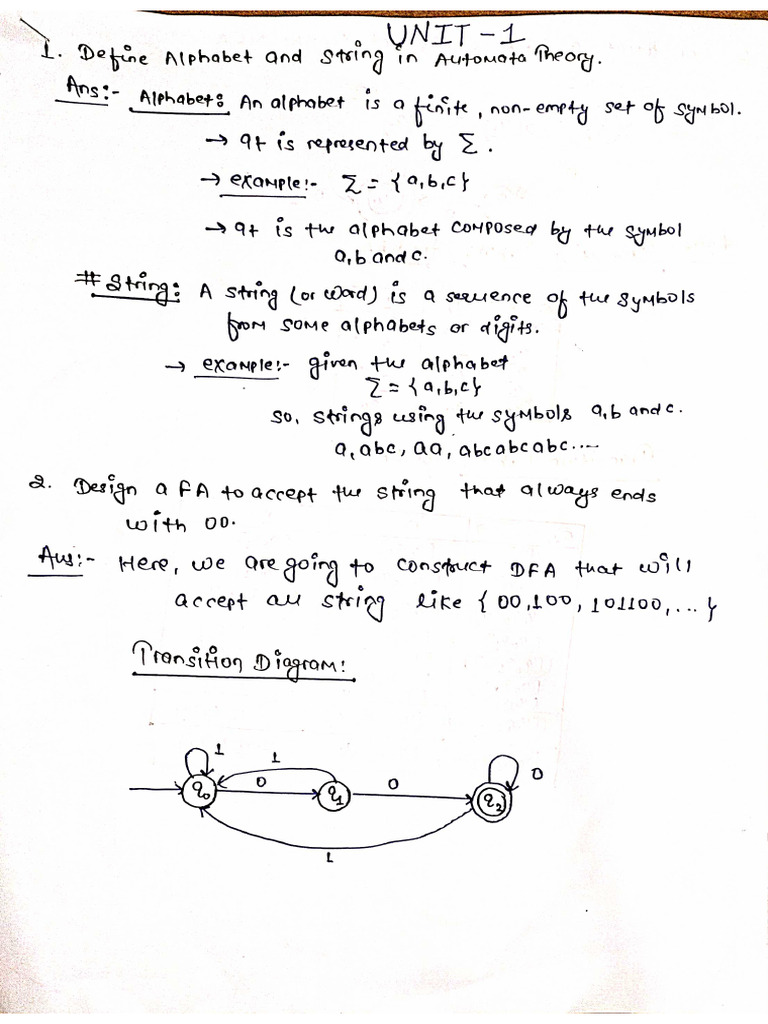 UNIT-1
1. Define Alphabet and string in Automata Theory.
Ans:- Alphabet: An alphabet is a finite, non-empty set of symbol.
→ It is represented by Σ.
→ example:- Σ = {a,b,c}
→ It is the alphabet composed by the symbol
a,b and c.
# String: A string (or word) is a sequence of the symbols
from some alphabets or digits.
→ example:- given the alphabet
Σ = {a,b,c}
so, strings using the symbols a,b and c.
a, abc, aa, abcabcabc....
2. Design a FA to accept the string that always ends
with 00.
Ans:- Here, we are going to construct DFA that will
accept all string like {00,100, 101100,...}
Transition Diagram:
1 1 0 0 0
q0 q1 q2
1